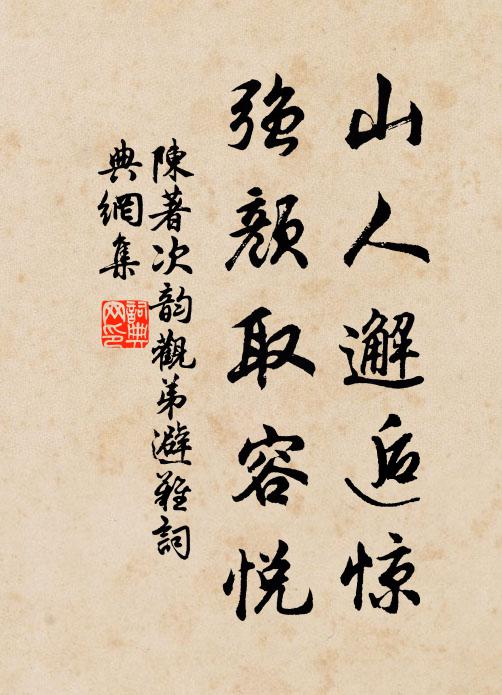 山人邂逅惊
强颜取容悦
陳著次韵觀弟避難詞
典網集
詞典網印